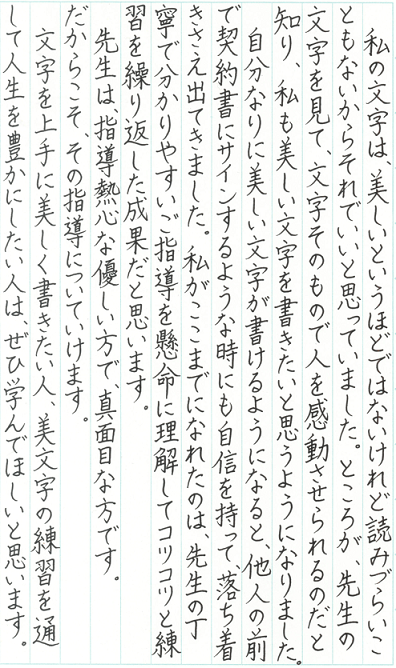 私の文字は、美しいというほどではないけれど読みづらいこ
ともないからそれでいいと思っていました。ところが、先生の
文字を見て、文字そのもので人を感動させられるのだと
知り、私も美しい文字を書きたいと思うようになりました。
自分なりに美しい文字が書けるようになると、他人の前
で契約書にサインするような時にも自信を持って、落ち着
きさえ出てきました。私がここまでになれたのは、先生の丁
寧で分かりやすいご指導を懸命に理解してコツコツと練
習を繰り返した成果だと思います。
先生は、指導熱心な優しい方で、真面目な方です。
だからこそ、その指導についていけます。
文字を上手に美しく書きたい人、美文字の練習を通
して人生を豊かにしたい人は、ぜひ学んでほしいと思います。